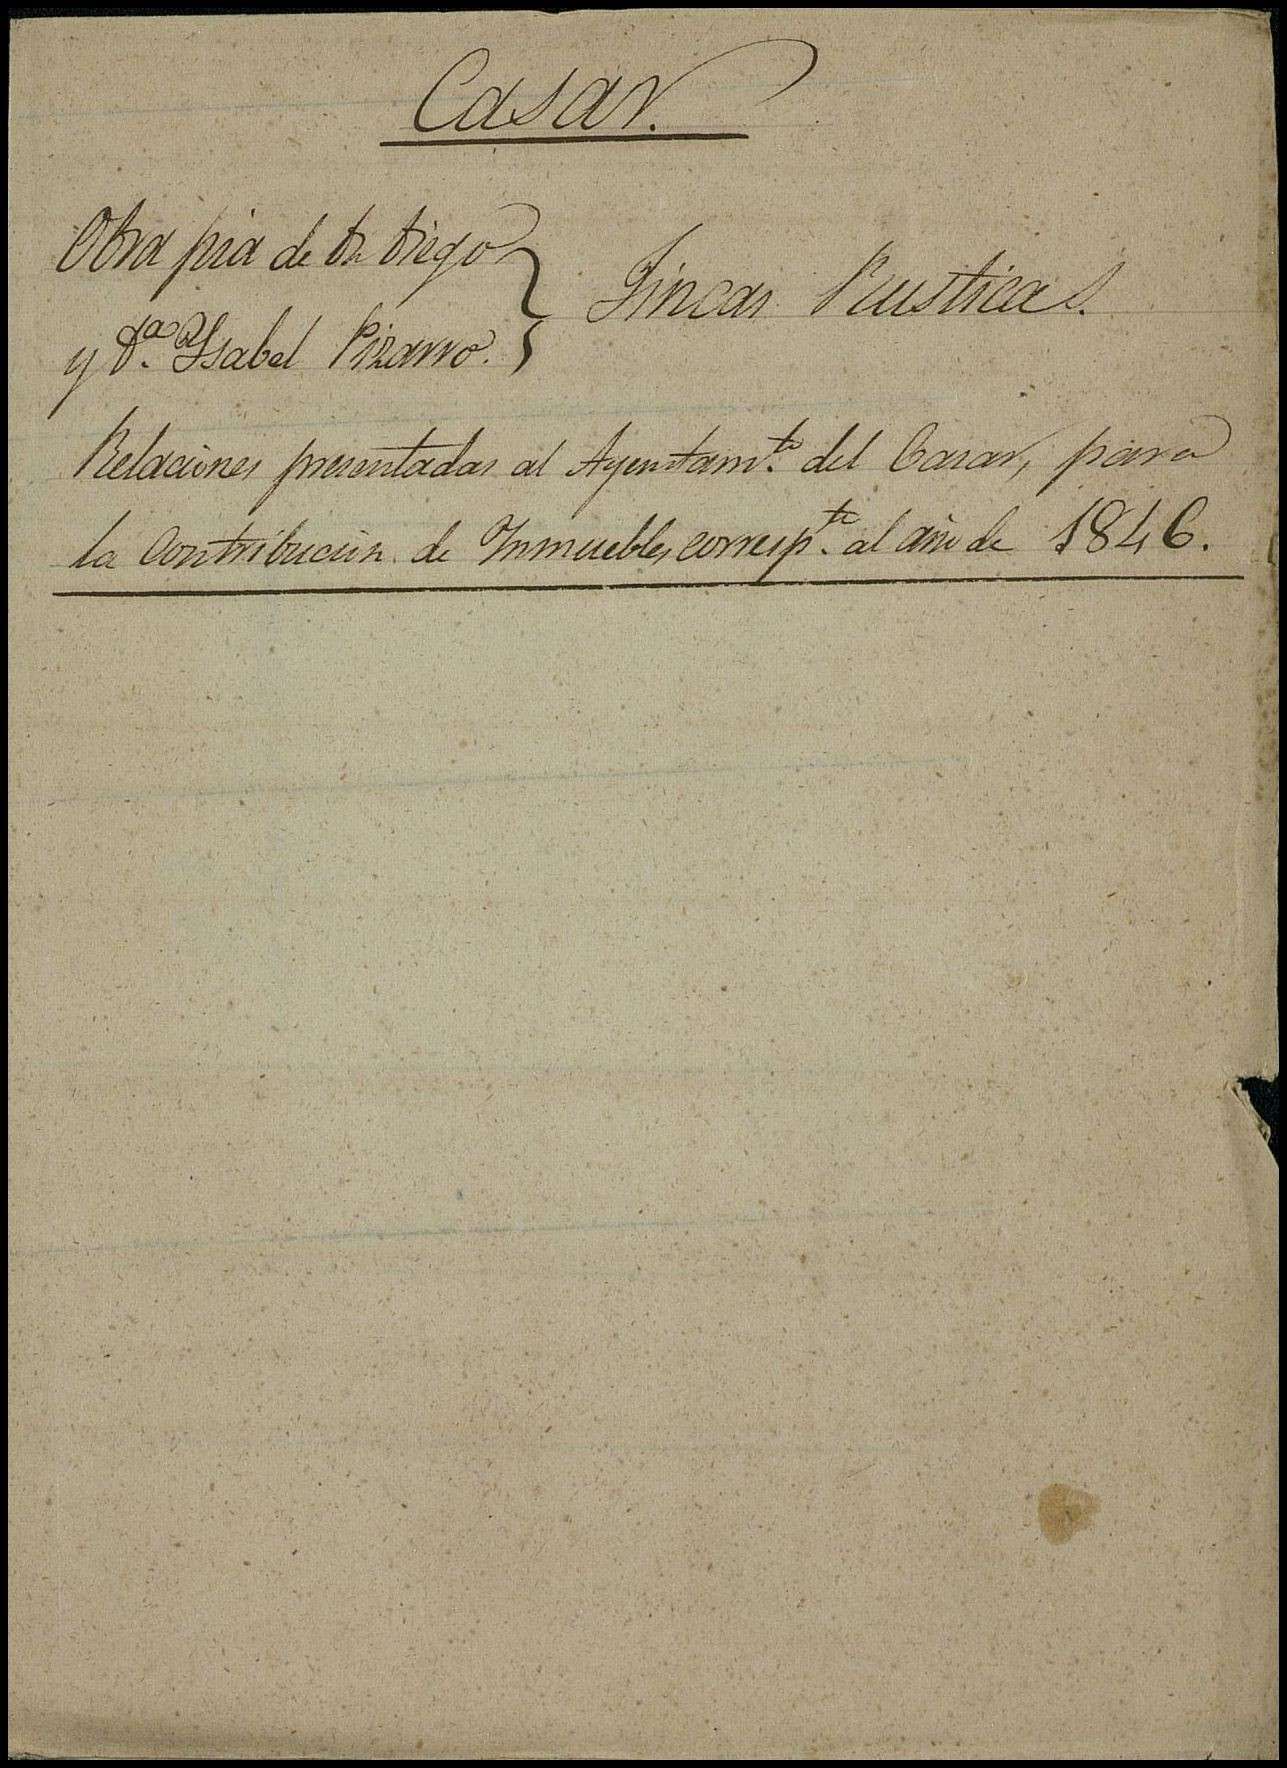 Casar.
Obra pia de Dn Diego
y Dª. Ysabel Pizarro.
Fincas Rusticas.
Relaciones presentadas al Ayuntamto. del Casar, para
la Contribucion de Inmuebles, correspte. al año de 1846.